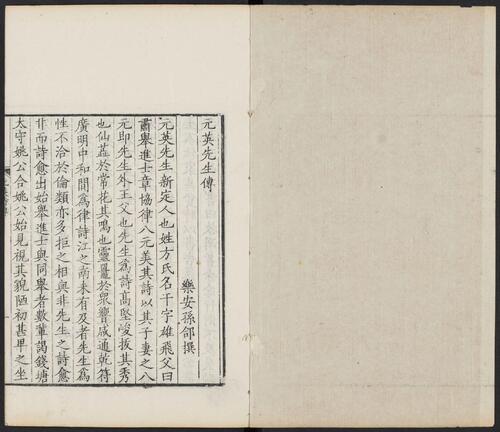 元英先生傳
樂安孫郃撰
元英先生新定人也姓方氏名干字雄飛父曰
肅舉進士章協律八元美其詩以其子妻之八
元即先生外王父也先生為詩高堅峻拔其秀
也仙蘂於常花其鳴也靈鼉於眾響咸通乾符
廣明中和間為律詩江之南未有及者先生為
性不洽於倫類亦多拒之相與非先生之詩愈
非而詩愈出始舉進士與同舉者數輩謁錢塘
太守姚公合姚公始見視其貌陋初甚卑之坐